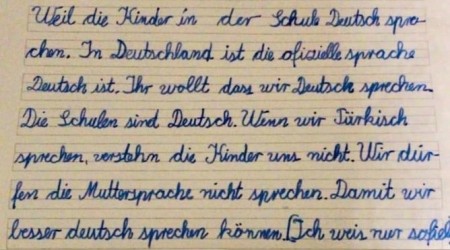 Weil die Kinder in der Schule Deutsch spre-
chen. In Deutschland ist die ofizielle sprache
Deutsch ist. Ihr wollt dass wir Deutsch sprechen
Die Schulen sind Deutsch. Wenn wir Türkisch
sprechen, verstehn die Kinder uns nicht. Wir dür-
fen die Muttersprache nicht sprechen. Damit wir
besser deutsch sprechen können. [Ich weis nur sofiel